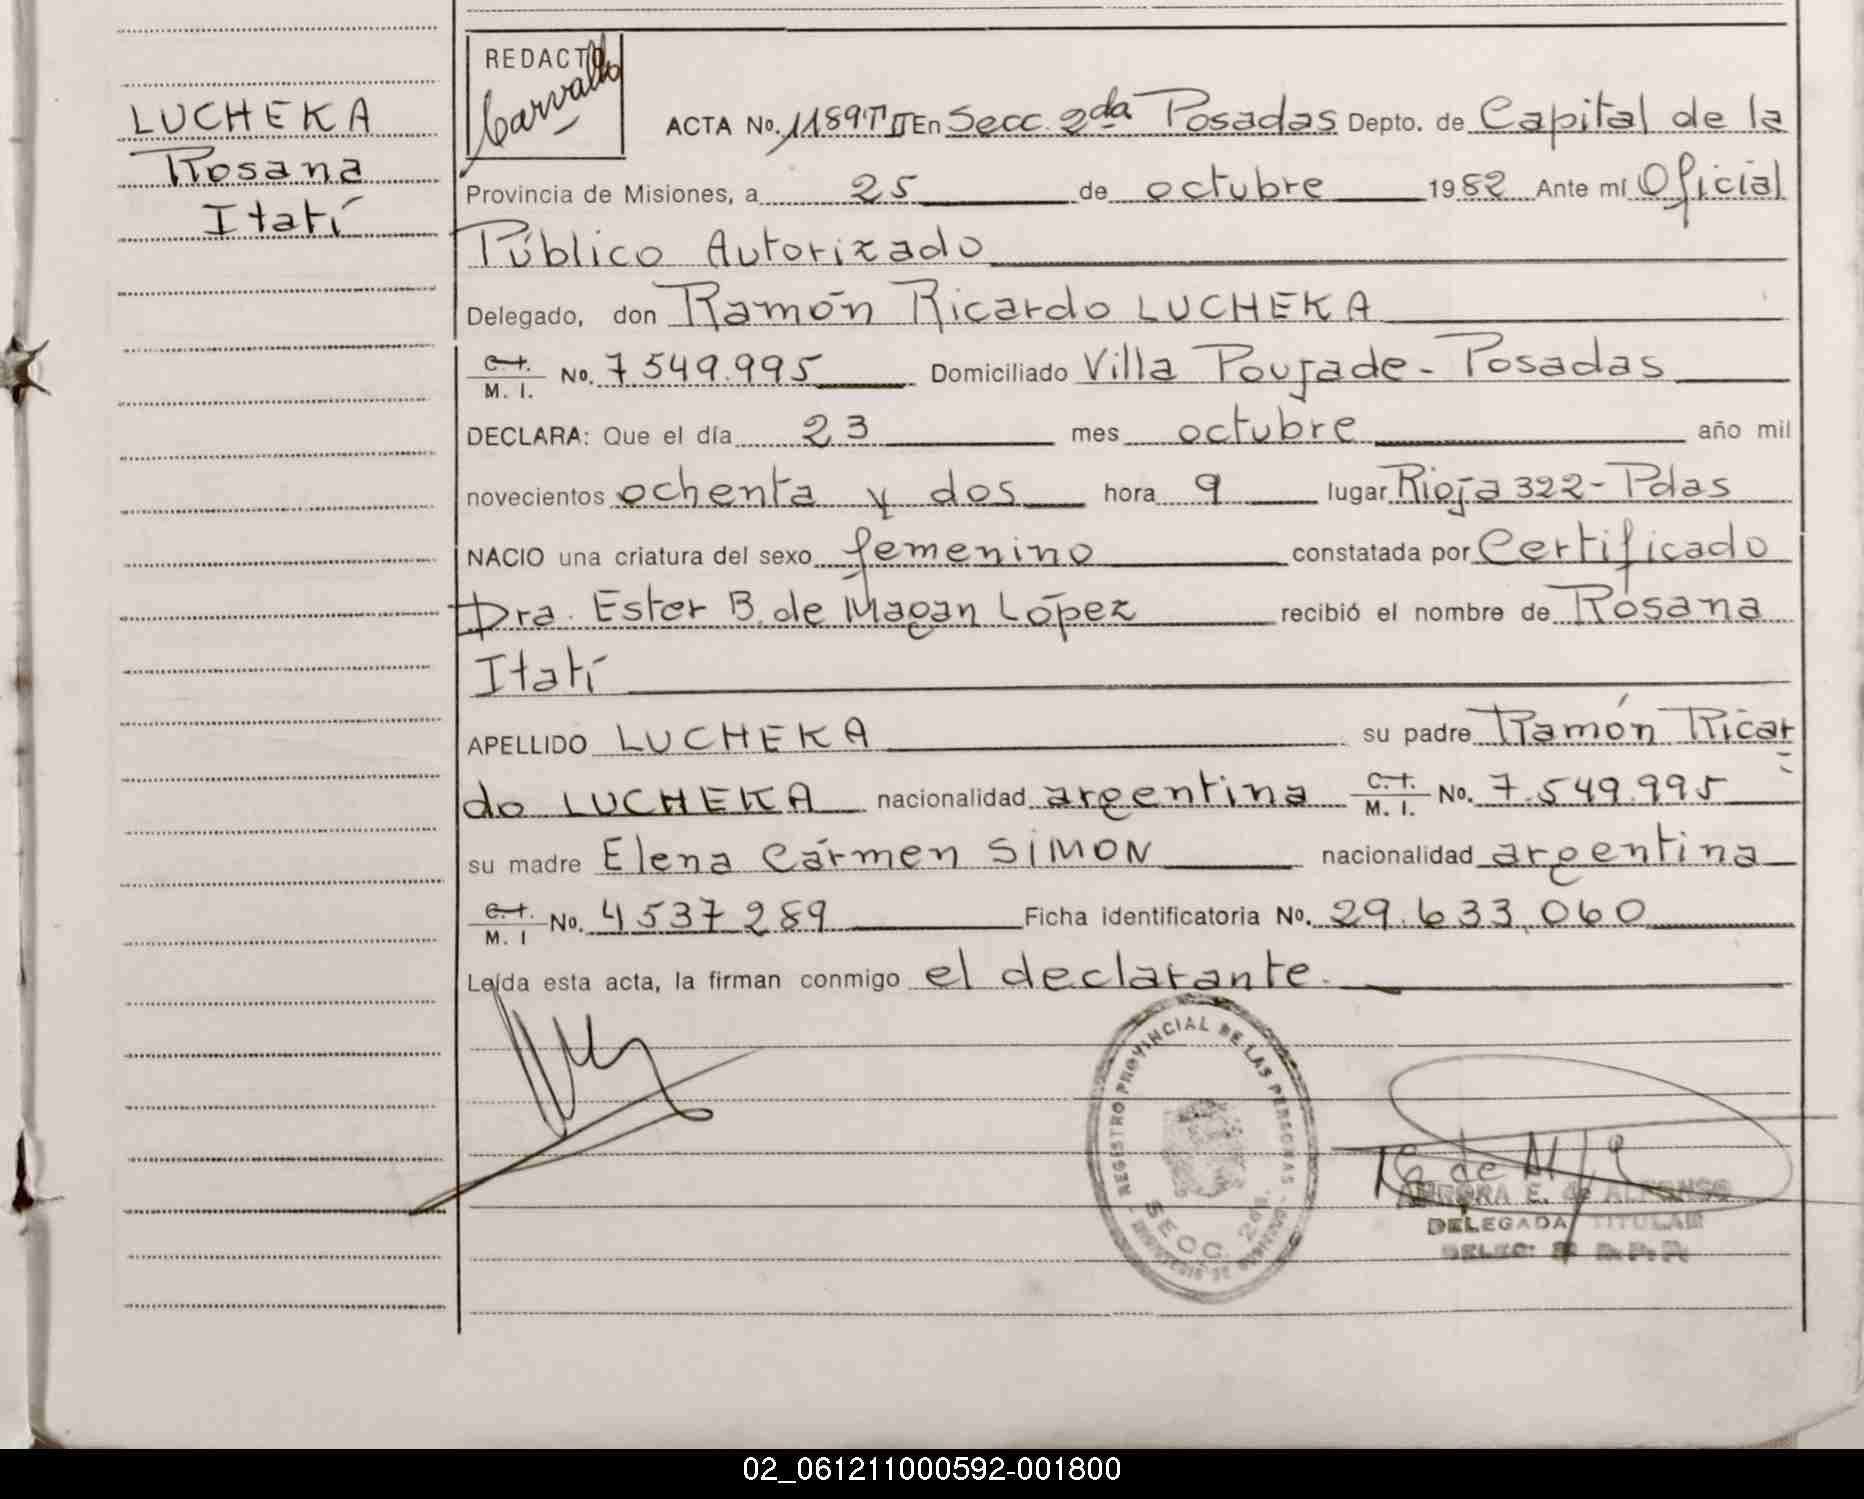 LUCHEKA
Rosana
Itatí
REDACTO
Carvallo
ACTA No. 1189 T II En Secc. 2da Posadas Depto. de Capital de la
Provincia de Misiones, a 25 de octubre 1982 Ante mí Oficial
Público Autorizado
Delegado, don Ramón Ricardo LUCHEKA
C.I. M. I. No. 7 549.995 Domiciliado Villa Poujade - Posadas
DECLARA: Que el día 23 mes octubre año mil
novecientos ochenta y dos hora 9 lugar Rioja 322 - Pdas
NACIO una criatura del sexo femenino constatada por Certificado
Dra. Ester B. de Magan López recibió el nombre de Rosana
Itatí
APELLIDO LUCHEKA su padre Ramón Ricar
do LUCHEKA nacionalidad argentina C.I. M. I. No. 7.549.995
su madre Elena Cármen SIMON nacionalidad argentina
C.I. M. I No. 4537289 Ficha identificatoria No. 29.633.060
Leída esta acta, la firman conmigo el declarante.
REGISTRO PROVINCIAL DE LAS PERSONAS
SECC. 2da.
AURORA E. de ALFONSO
DELEGADA TITULAR
02_061211000592-001800